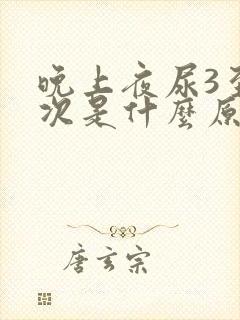 晚上夜尿3至
次是什麼原
唐玄宗